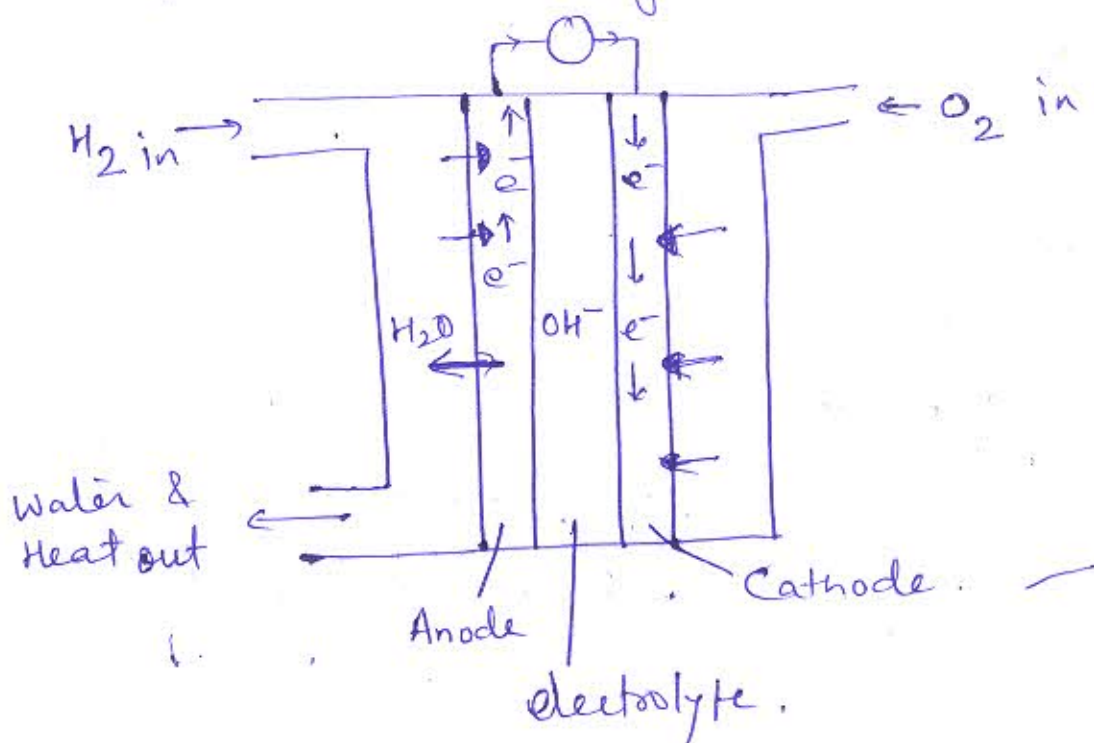 H₂ in
O₂ in
e⁻
e⁻
e⁻
H₂O
OH⁻
e⁻
Water &
Heat out
Anode
Cathode.
electrolyte.